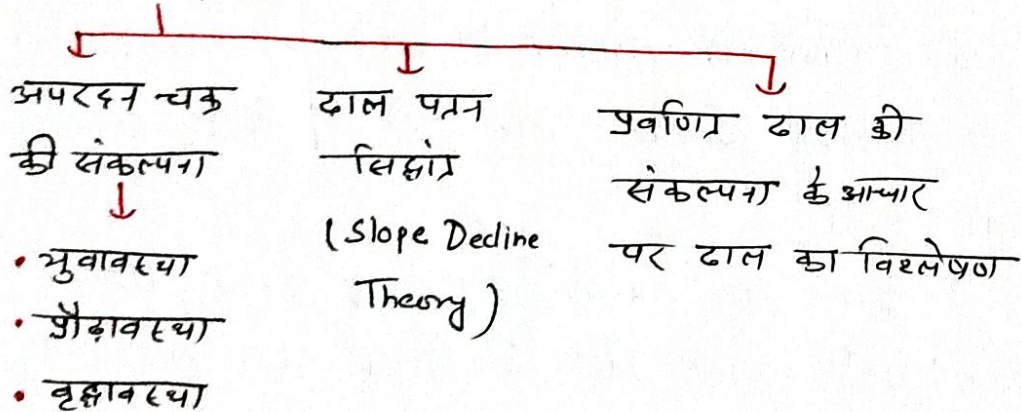 अपरदन चक्र
की संकल्पना
• युवावस्था
• प्रौढ़ावस्था
• वृद्धावस्था
ढाल पतन
सिद्धांत
(Slope Decline
Theory)
प्रवणित ढाल की
संकल्पना के आधार
पर ढाल का विश्लेषण